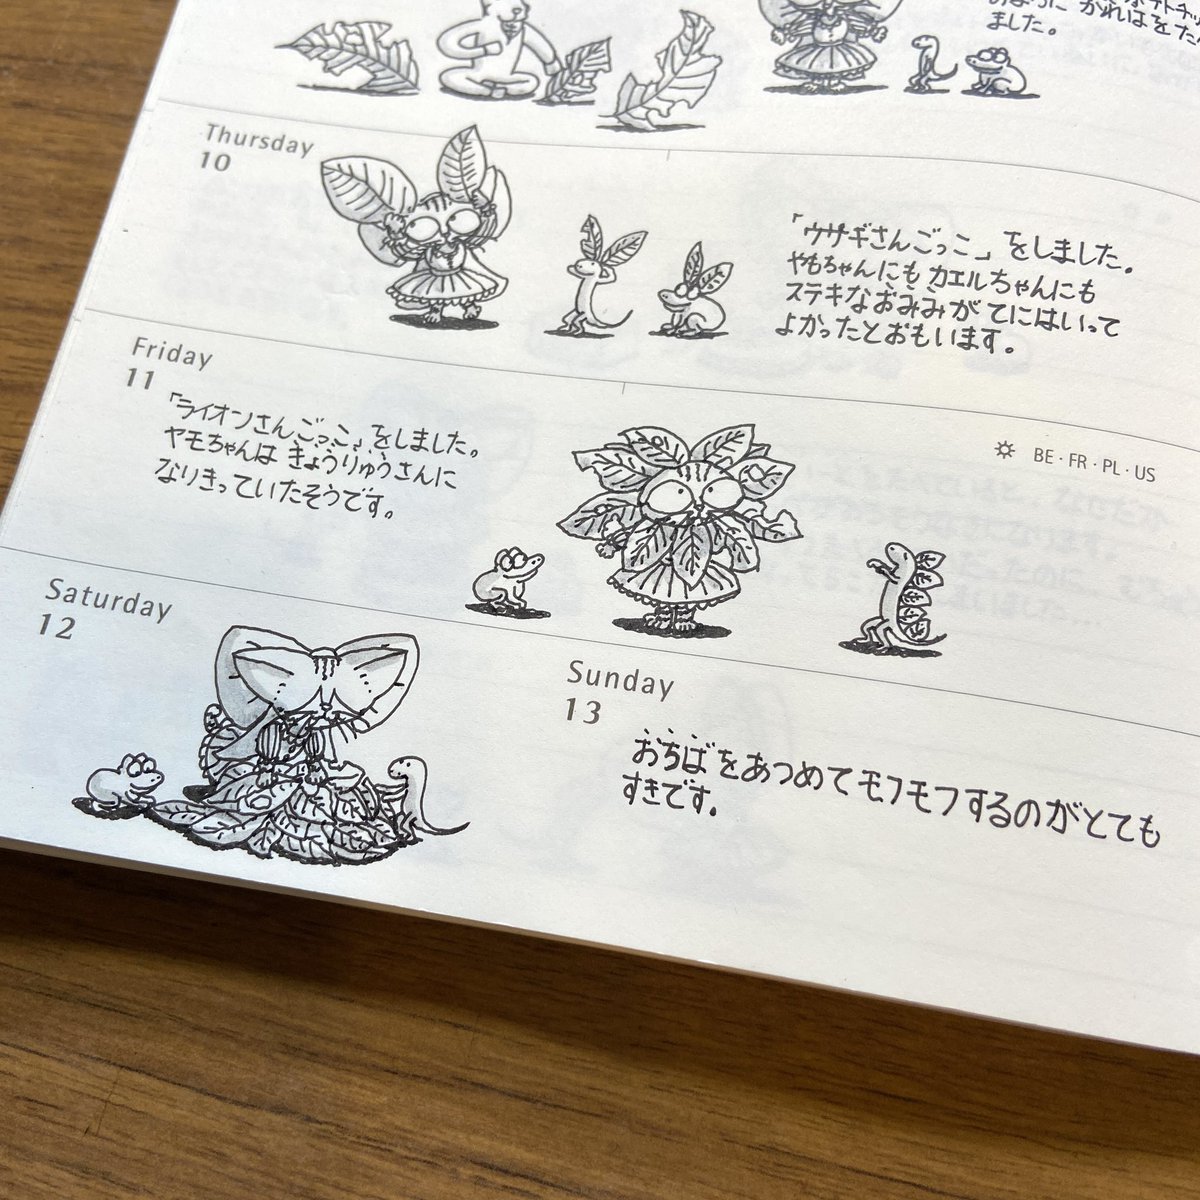 かれはをた
ました。
Thursday
10
「ウサギさんごっこ」をしました。
やもちゃんにも カエルちゃんにも
ステキなおみみが てにはいって
よかったとおもいます。
Friday
11
「ライオンさんごっこ」をしました。
ヤモちゃんは きょうりゅうさんに
なりきっていたそうです。
BE・FR・PL・US
Saturday
12
Sunday
13
おちばをあつめてモフモフするのがとても
すきです。